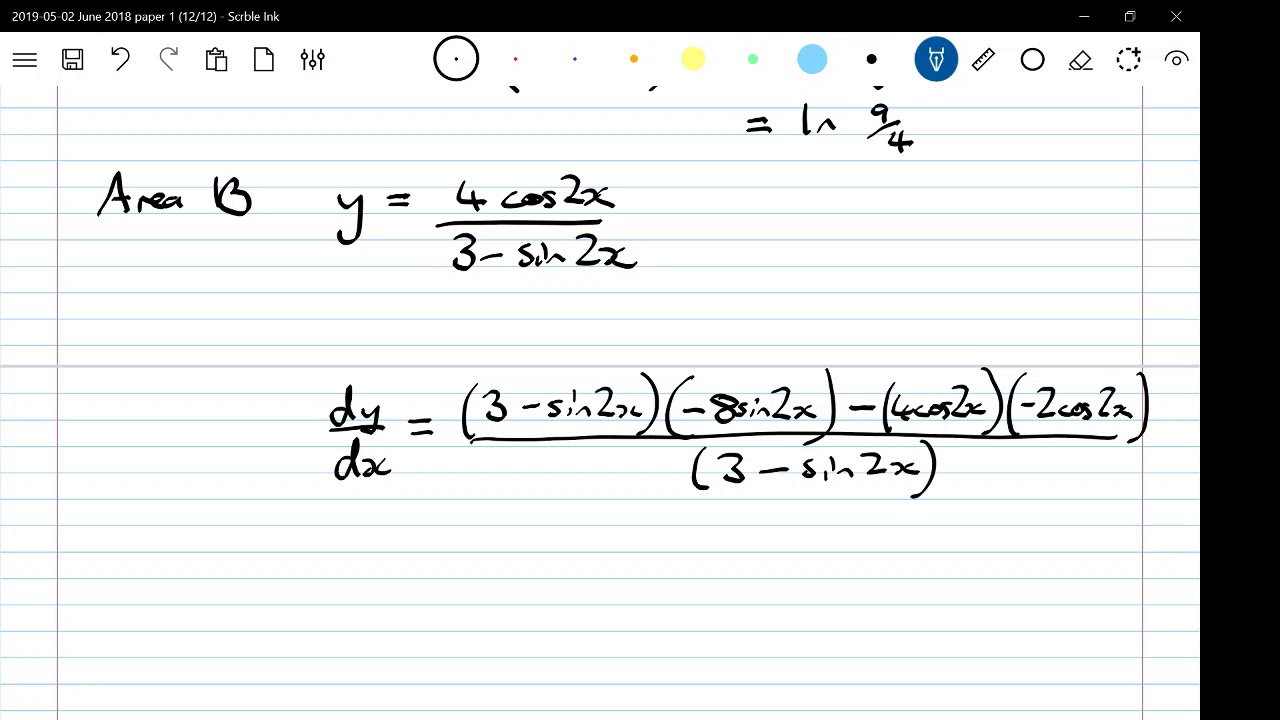 2019-05-02 June 2018 paper 1 (12/12) - Scrble Ink
= ln 9/4
Area B y = 4 cos2x / 3 - sin 2x
dy/dx = (3 - sin2x)(-8sin2x) - (4cos2x)(-2cos2x) / (3 - sin 2x)